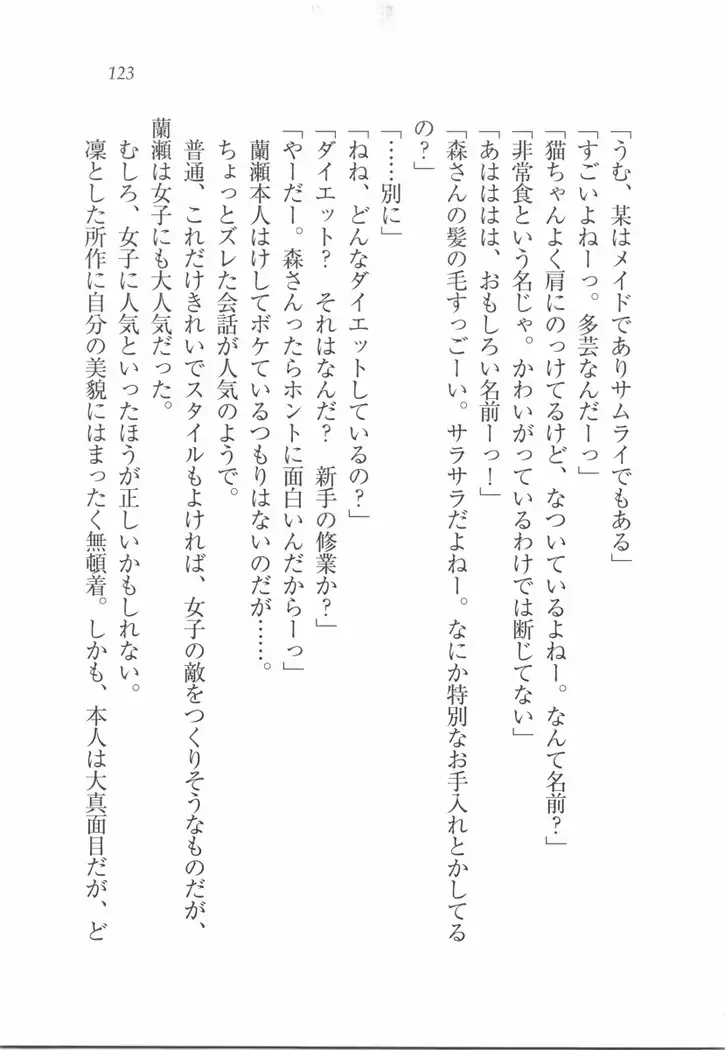 123
「うむ、某はメイドでありサムライでもある」
「すごいよねーっ。多芸なんだーっ」
「猫ちゃんよく肩にのっけてるけど、なついているよねー。なんて名前？」
「非常食という名じゃ。かわいがっているわけでは断じてない」
「あはははは、おもしろい名前ーっ！」
「森さんの髪の毛すっごーい。サラサラだよねー。なにか特別なお手入れとかしてる
の？」
「……別に」
「ねね、どんなダイエットしているの？」
「ダイエット？　それはなんだ？　新手の修業か？」
「やーだー。森さんったらホントに面白いんだからーっ」
蘭瀬本人はけしてボケているつもりはないのだが……。
ちょっとズレた会話が人気のようで。
普通、これだけきれいでスタイルもよければ、女子の敵をつくりそうなものだが、
蘭瀬は女子にも大人気だった。
むしろ、女子に人気といったほうが正しいかもしれない。
凜とした所作に自分の美貌にはまったく無頓着。しかも、本人は大真面目だが、ど